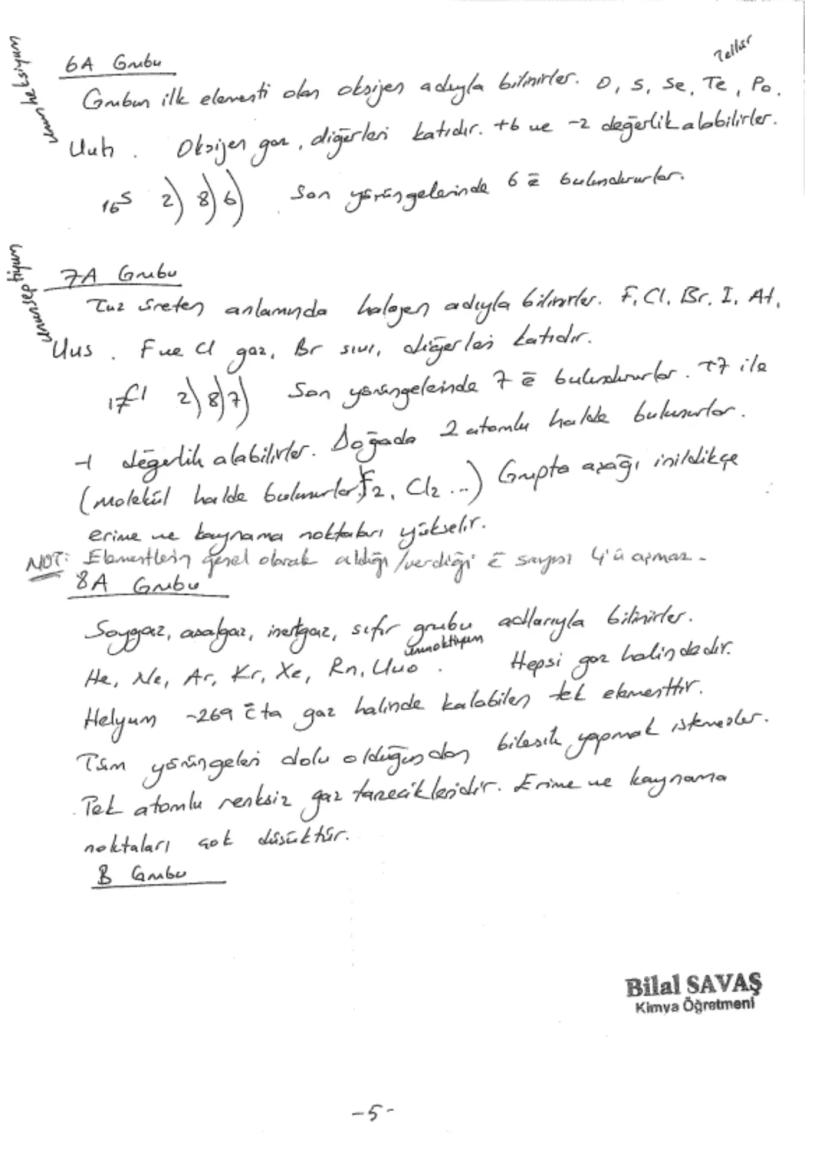 Tellür
6A Grubu
ununheksiyum
Grubun ilk elementi olan oksijen adıyla bilinirler. O, S, Se, Te, Po,
Uuh. Oksijen gaz, diğerleri katıdır. +6 ve -2 değerlik alabilirler.
16S 2) 8) 6) Son yörüngelerinde 6 ē bulundururlar.
7A Grubu
ununseptiyum
Tuz üreten anlamında halojen adıyla bilinirler. F, Cl, Br, I, At,
Uus. F ve Cl gaz, Br sıvı, diğerleri katıdır.
17Cl 2) 8) 7) Son yörüngeleinde 7 ē bulundururlar. +7 ile
-1 değerlik alabilirler. Doğada 2 atomlu halde bulunurlar.
(Molekül halde bulunurlar. F2, Cl2 ...) Grupta aşağı inildikçe
erime ve kaynama noktaları yükselir.
NOT: Elementlerin genel olarak aldığı/verdiği ē sayısı 4'ü aşmaz.
8A Grubu
Soygaz, asalgaz, inertgaz, sıfır grubu adlarıyla bilinirler.
ununoktiyum
He, Ne, Ar, Kr, Xe, Rn, Uuo. Hepsi gaz halindedir.
Helyum -269 ̄C ta gaz halinde kalabilen tek elementtir.
Tüm yörüngeleri dolu olduğundan bileşik yapmak istemezler.
Tek atomlu renksiz gaz tanecikleridir. Erime ve kaynama
noktaları çok düşüktür.
B Grubu
Bilal SAVAŞ
Kimya Öğretmeni
-5-